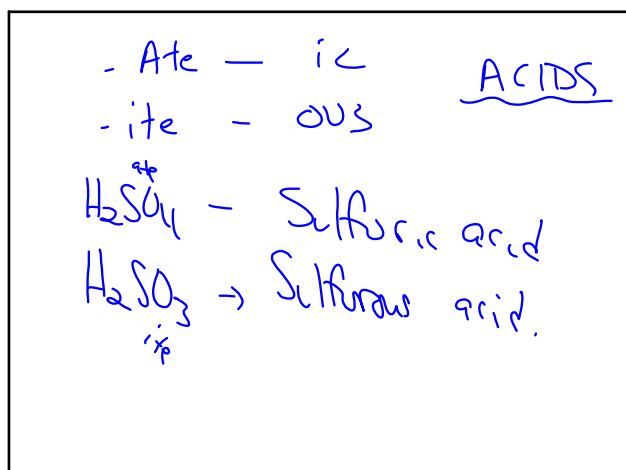 - Ate — ic
ACIDS
- ite - ous
ate
H₂SO₄ - Sulfuric acid
H₂SO₃ → Sulfurous acid.
ite